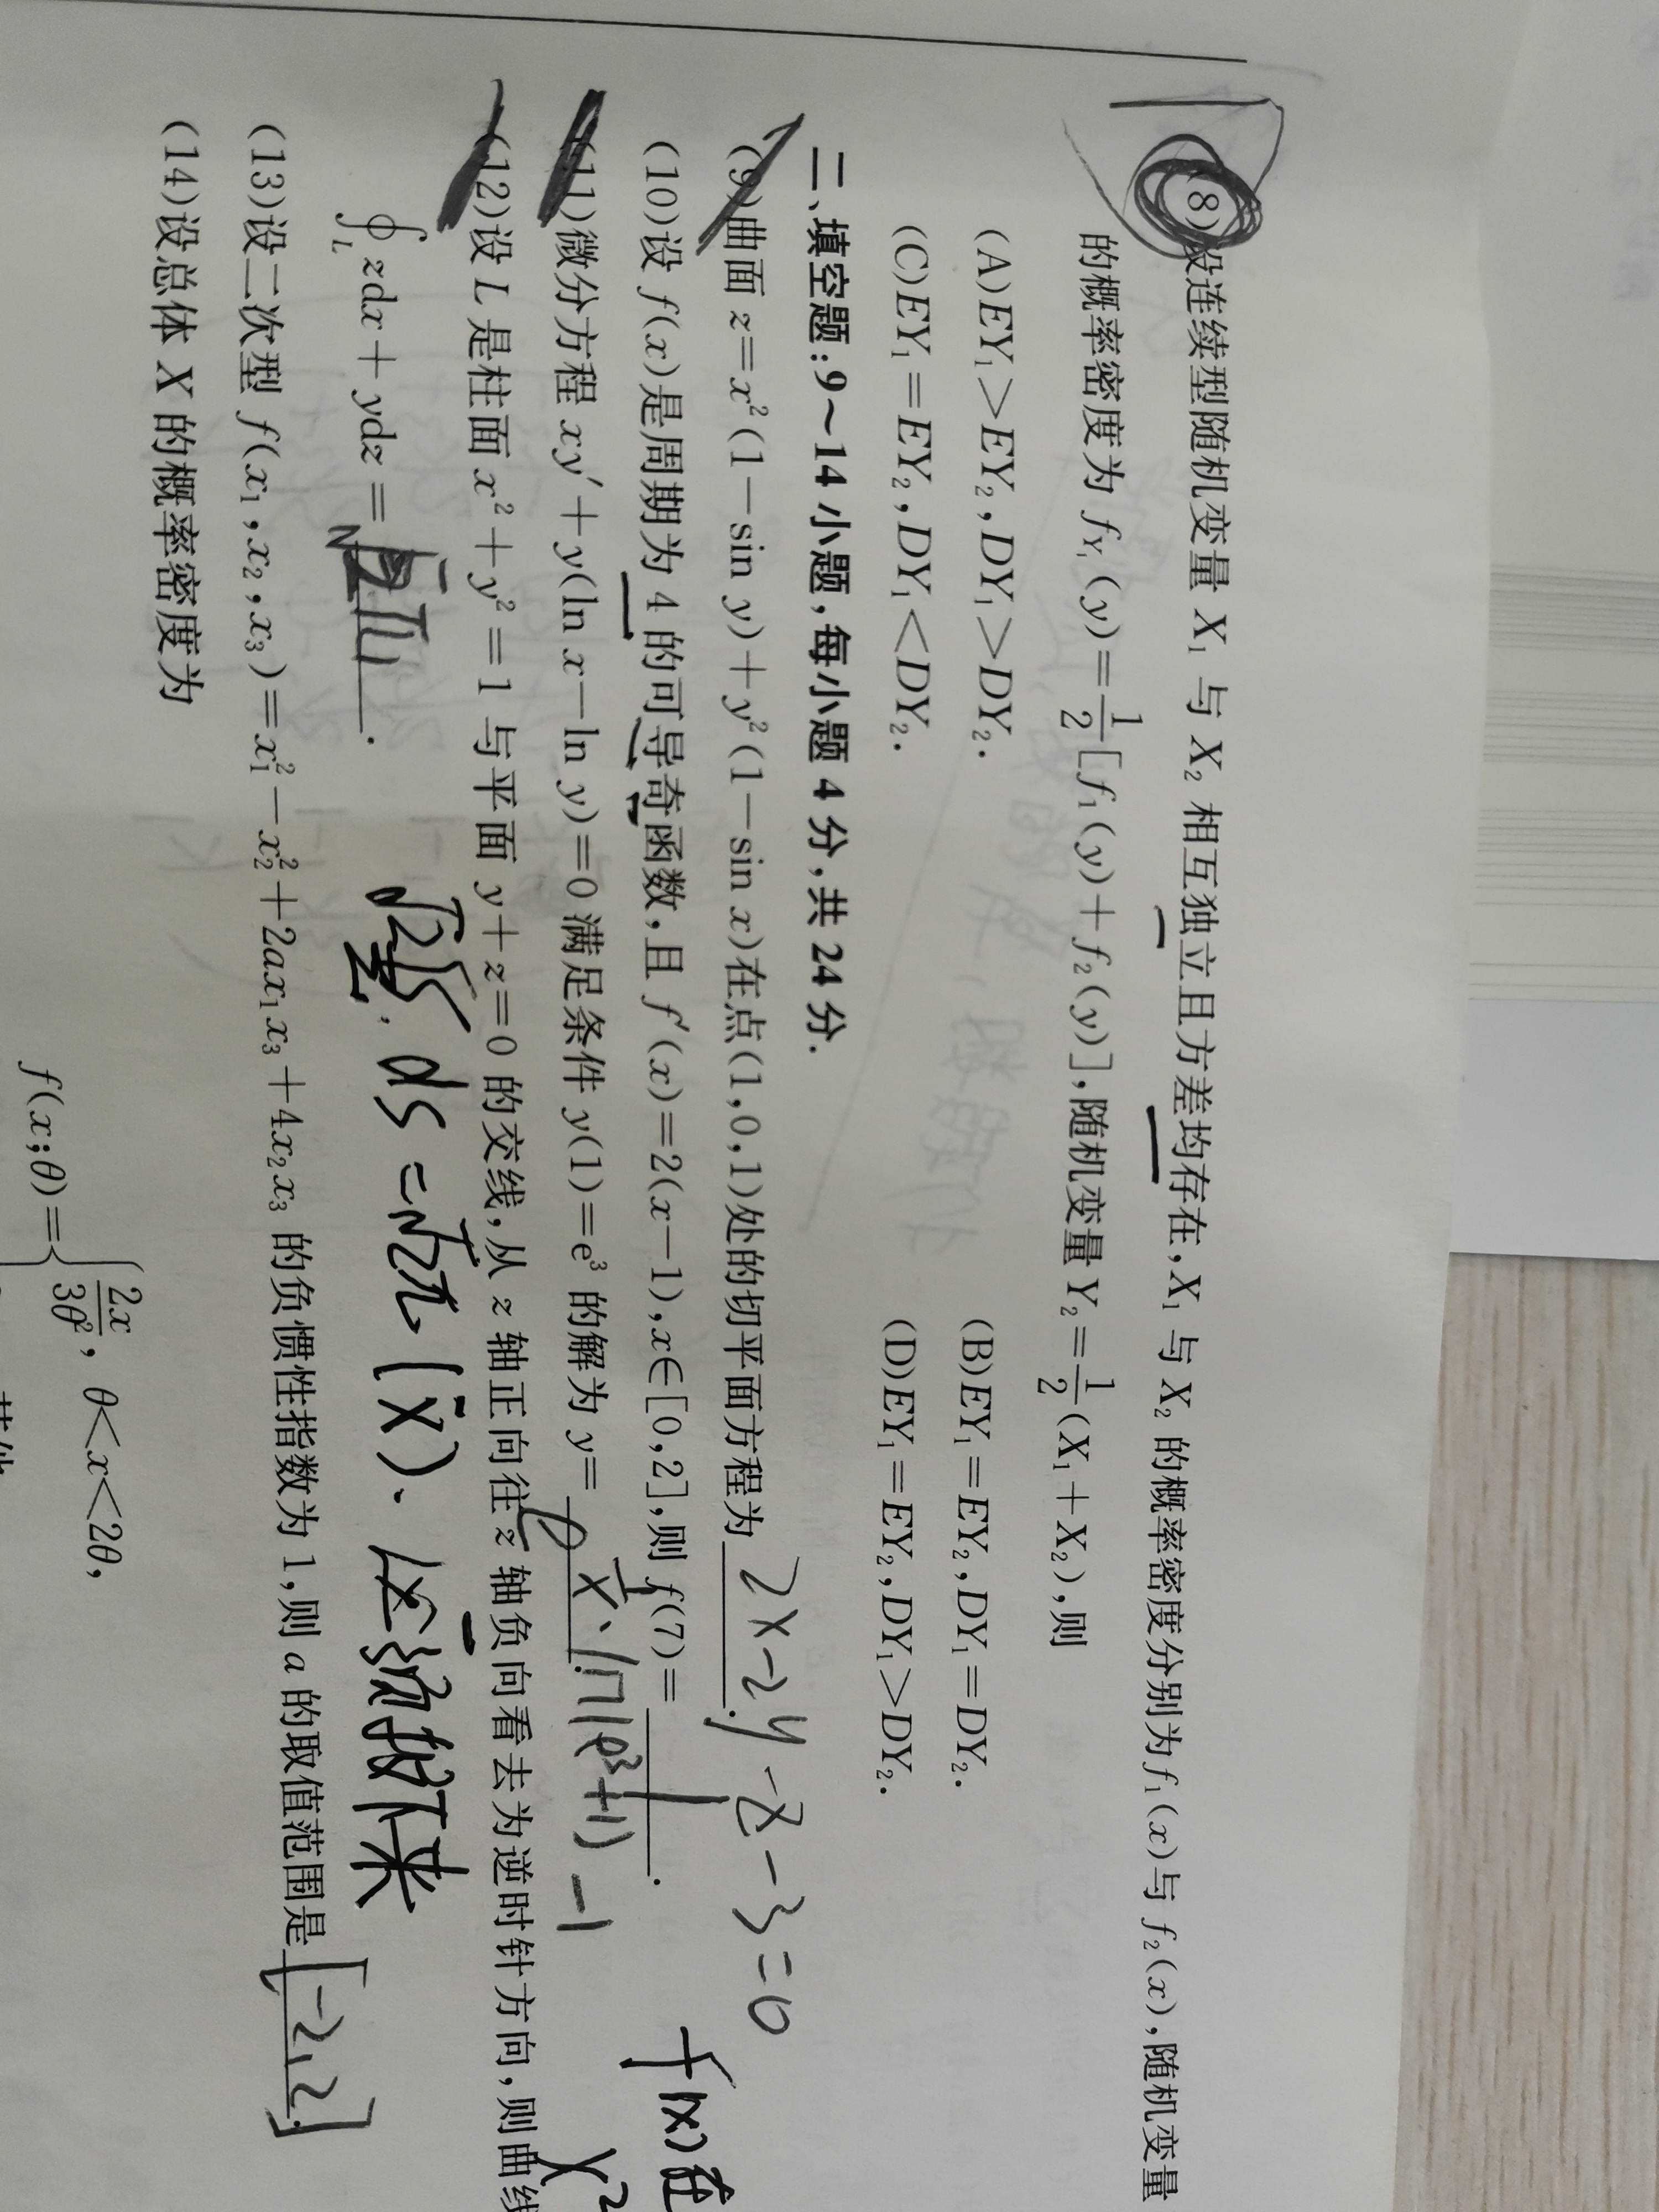 (8)设连续型随机变量 X₁ 与 X₂ 相互独立且方差均存在,X₁ 与 X₂ 的概率密度分别为 f₁(x)与 f₂(x),随机变量
的概率密度为 f_{Y₁}(y)=\frac{1}{2}[f₁(y)+f₂(y)],随机变量 Y₂=\frac{1}{2}(X₁+X₂),则
(A)EY₁>EY₂,DY₁>DY₂. (B)EY₁=EY₂,DY₁=DY₂.
(C)EY₁=EY₂,DY₁<DY₂. (D)EY₁=EY₂,DY₁>DY₂.
二、填空题:9~14 小题,每小题 4 分,共 24 分.
(9)曲面 z=x²(1-sin y)+y²(1-sin x)在点(1,0,1)处的切平面方程为 2x-2y-z-3=0
(10)设 f(x)是周期为 4 的可导奇函数,且 f′(x)=2(x-1),x∈[0,2],则 f(7)= 1 . f(x)在
(11)微分方程 xy′+y(ln x-ln y)=0 满足条件 y(1)=e³ 的解为 y= x·ln(e³+1) -1 x²
(12)设 L 是柱面 x²+y²=1 与平面 y+z=0 的交线,从 z 轴正向往 z 轴负向看去为逆时针方向,则曲线
∮_L zdx+ydz= .
ds=√2π (x)、
(13)设二次型 f(x₁,x₂,x₃)=x₁²-x₂²+2ax₁x₃+4x₂x₃ 的负惯性指数为 1,则 a 的取值范围是 [-2,2] .
(14)设总体 X 的概率密度为
f(x;θ)={ \frac{2x}{3θ²}, θ<x<2θ,